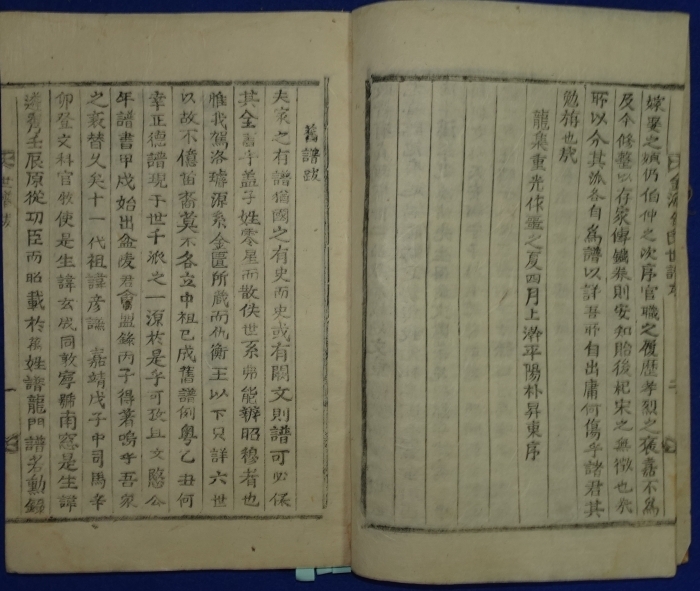 金海金氏世譜序
嫁娶之姻仍伯仲之次序官職之履歷孝烈之褒嘉不爲
及今修整以存家傳鐵柴則安知貽後杞宋之無徵也
所以分其派各自爲譜以詳吾所自出庸何傷乎諸君其
勉旃也哉
龍集重光作噩之夏四月上澣平陽朴昇東序
舊譜跋
夫家之有譜猶國之有史而史或有闕文則譜可必保
其全書乎盖子姓零星而散佚世系弗能辨昭穆者也
惟我駕洛璿源系金匱所藏而仇衡王以下只詳六世
以故不億苗裔莫不各立中祖已成舊譜例粤乙丑何
幸正德譜現于世千派之一源於是乎可攷且文愍公
年譜書甲戌始出盆城君會盟錄丙子得著嗚乎吾家
之衰替久矣十一代祖諱彦謙嘉靖戊子中司馬辛
卯登文科官敎使是生諱玄成同敦寧號南窓是生諱
壬辰原從功臣而昭載於萬姓譜龍門譜者勳錄
世譜跋
一